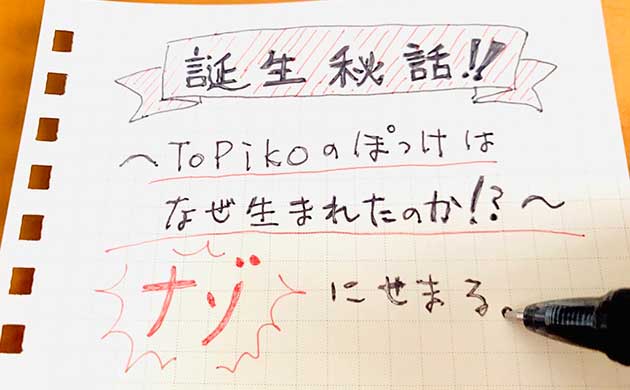 誕生秘話!!
～ToPikoのぽっけは
なぜ生まれたのか!?～
ナゾにせまる。